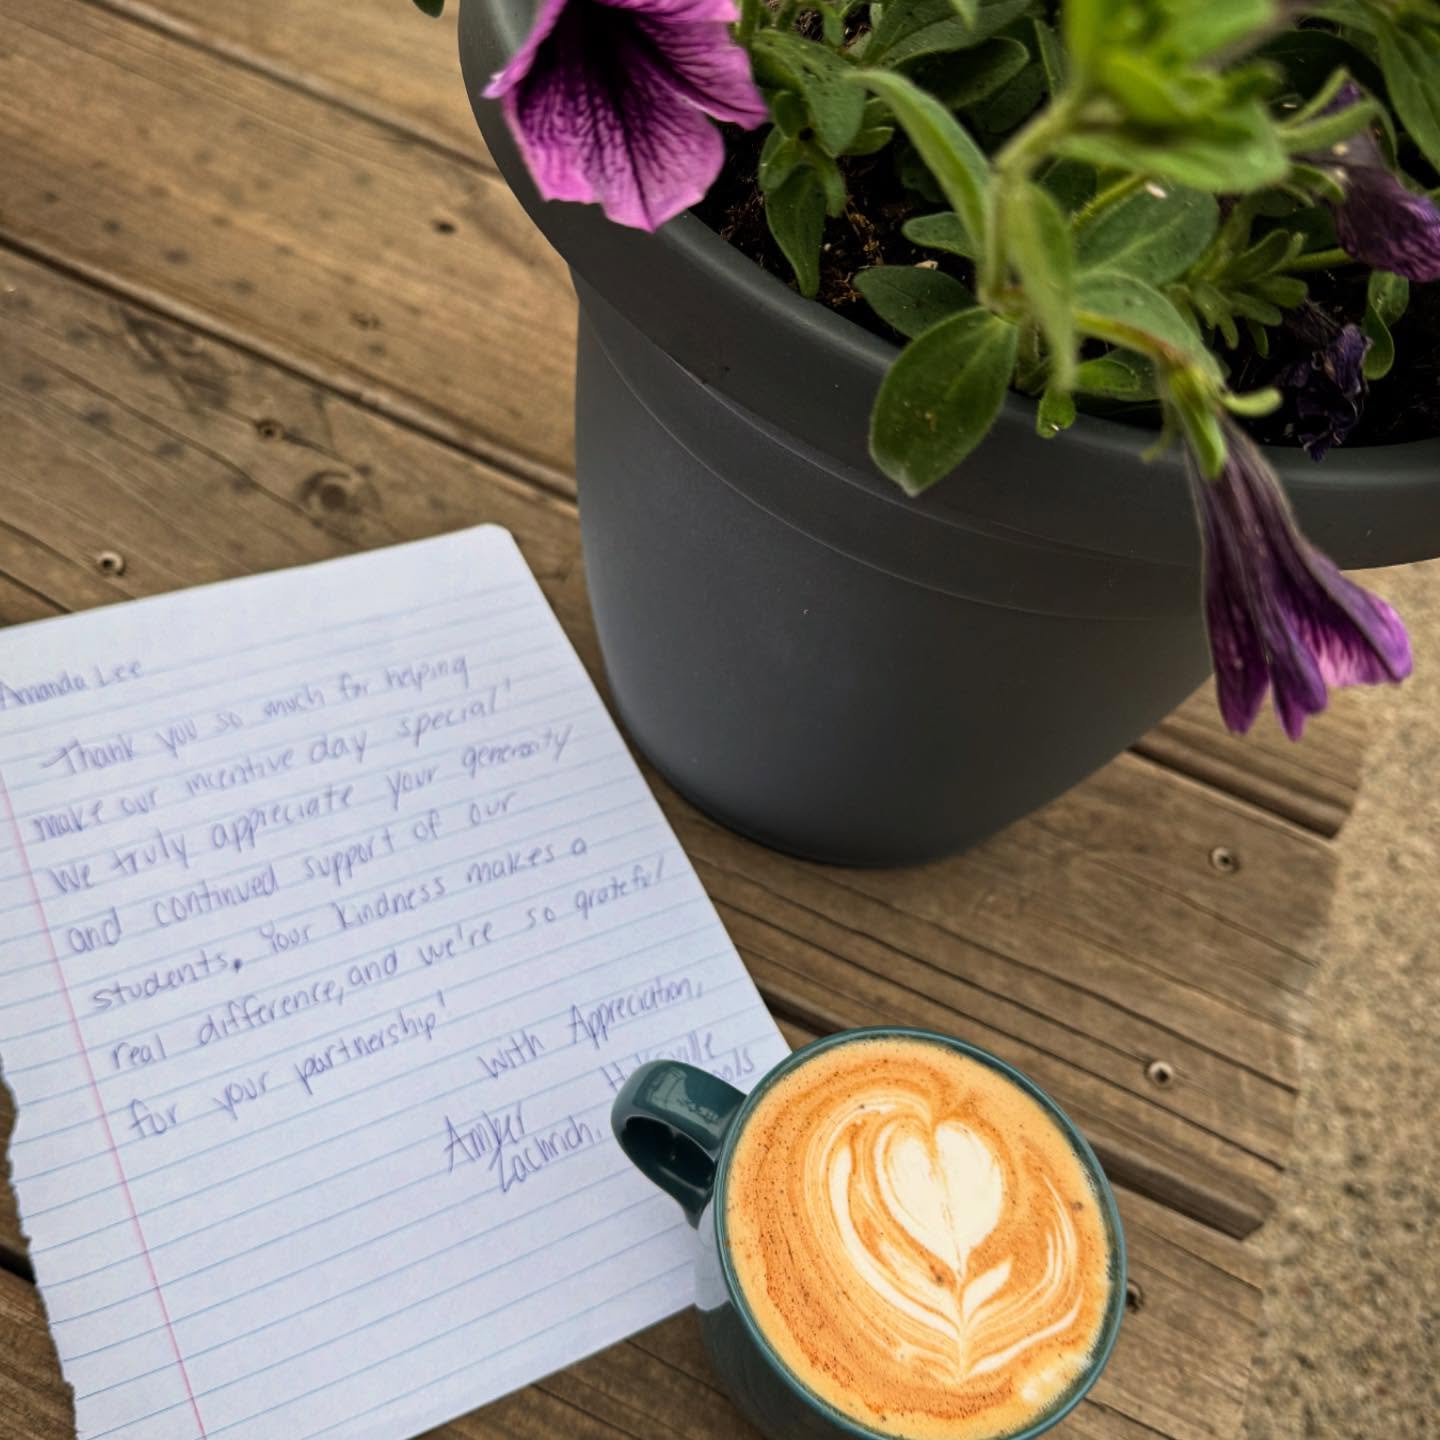 Amanda Lee
Thank you so much for helping
make our incentive day special!
We truly appreciate your generosity
and continued support of our
students. Your kindness makes a
real difference, and we're so grateful
for your partnership!
With Appreciation,
Amber